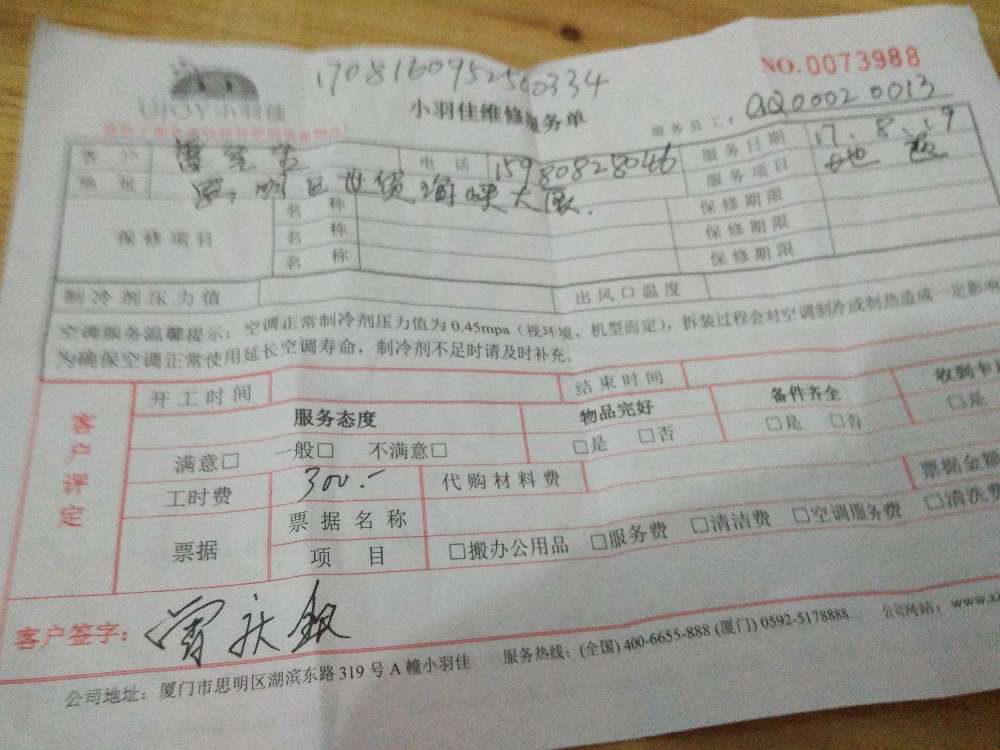 170816095250334
NO.0073988
UJOY小羽佳
小羽佳维修服务单
服务员工：AQ00020013
客户 电话 15980828046 服务日期 17.8.19
地址 世贸海峡大厦. 服务项目 地板
保修项目 名称 保修期限
名称 保修期限
名称 保修期限
制冷剂压力值 出风口温度
空调服务温馨提示：空调正常制冷剂压力值为0.45mpa（视环境、机型而定），拆装过程会对空调制冷或制热造成一定影响
为确保空调正常使用延长空调寿命，制冷剂不足时请及时补充。
客户评定
开工时间 结束时间
服务态度 物品完好 备件齐全 收到
满意□ 一般□ 不满意□ □是 □否 □是 □否 □是
工时费 300.- 代购材料费 票据金额
票据 票据名称
项目 □搬办公用品 □服务费 □清洁费 □空调服务费 □清洗费
客户签字：曾庆银
公司地址：厦门市思明区湖滨东路319号A幢小羽佳 服务热线：(全国) 400-6655-888 (厦门) 0592-5178888 公司网站：www.x